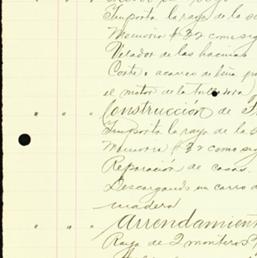 Importa la raya de la s
Memoria # 32 como sig
Velador de las hacinas
Corte y acarreo de leña p
el motor de la
" " " Construcción de
Importa la raya de la s
Memoria # 32 como sig
Reparación de casas
Descargando un carro d
madera
" " " Arrendamien
Raya de 2 monteros